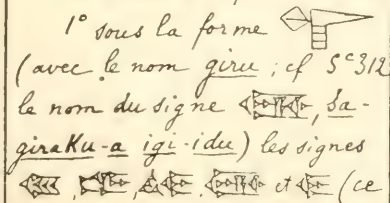 1° sous la forme
(avec le nom giru ; cf Sᶜ 312
le nom du signe , ša-
giraKu-a igi-idu) les signes
et (ce